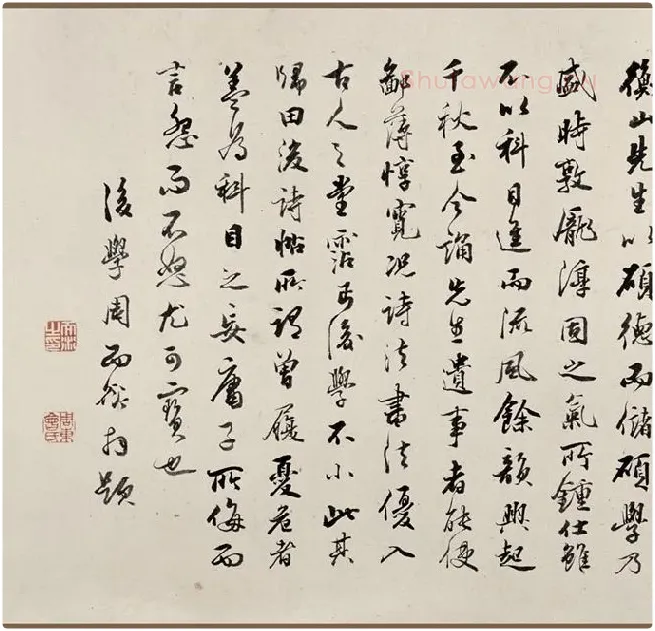 衡山先生以碩德而儲碩學乃
盛時敦龐淳固之氣所鍾仕雖
不以科目進而流風餘韻興起
千秋至今誦先生遺事者能使
鄙薄惇寬況詩法書法優入
古人之堂霑丐後學不小此其
歸田後詩帖所謂曾履憂危者
蓋為科目之妄庸子所侮而
言怨而不怒尤可寶也
後學周而拜題